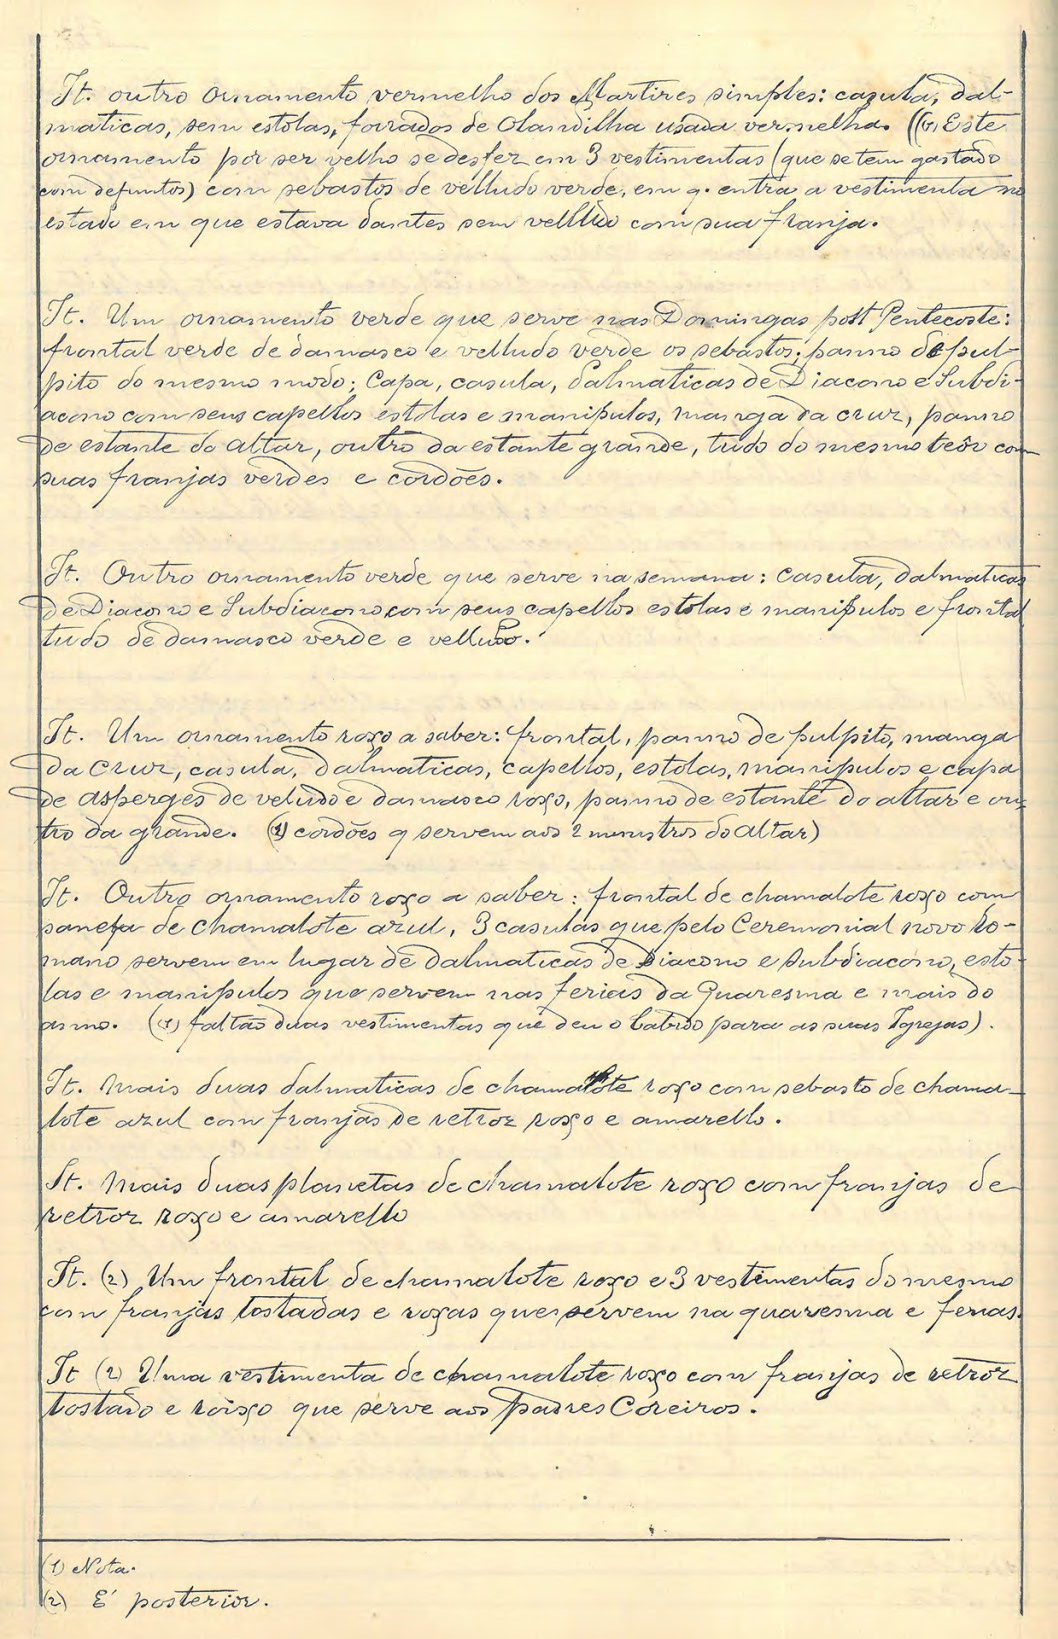 It. outro ornamento vermelho dos Martires simples: cazula, dal-
maticas, sem estolas, forrados de Olandilha usada vermelha. ((1) Este
ornamento por ser velho se desfez em 3 vestimentas (que se tem gastado
com defuntos) com sebastos de velludo verde, em q. entra a vestimenta no
estado em que estava dantes sem velludo com sua franja.
It. Um ornamento verde que serve nas Domingas post Pentecoste:
frontal verde de damasco e velludo verde os sebastos; panno de pul-
pito do mesmo modo; Capa, casula, dalmaticas de Diacono e Subdi-
acono com seus capellos estolas e manipulos, manga da cruz, panno
de estante do altar, outro da estante grande, tudo do mesmo teôr com
suas franjas verdes e cordões.
It. Outro ornamento verde que serve na semana: casula, dalmaticas
de Diacono e Subdiacono, com seus capellos estolas e manipulos e frontal
tudo de damasco verde e velludo.
It. Um ornamento roxo a saber: frontal, panno de pulpito, manga
da cruz, casula, dalmaticas, capellos, estolas, manipulos e capa
de asperges de veludo e damasco roxo, panno de estante do altar e ou-
tro da grande. ((1) cordões q servem aos 2 ministros do altar)
It. Outro ornamento roxo a saber: frontal de chamalote roxo com
sanefa de chamalote azul, 3 casulas que pelo Ceremonial novo Ro-
mano servem em lugar de dalmaticas de Diacono e Subdiacono, esto-
las e manipulos que servem nas ferias da Quaresma e mais do
anno. ((1) faltão duas vestimentas que deu o Cabido para as suas Igrejas).
It. Mais duas dalmaticas de chamalote roxo com sebasto de chama-
lote azul com franjas de retroz roxo e amarello.
It. Mais duas planetas de chamalote roxo com franjas de
retroz roxo e amarello
It. (2) Um frontal de chamalote roxo e 3 vestimentas do mesmo
com franjas tostadas e roxas que servem na quaresma e ferias.
It (2) Uma vestimenta de chamalote roxo com franjas de retroz
tostado e roixo que serve aos padres Coreiros.
(1) Nota.
(2) É posterior.